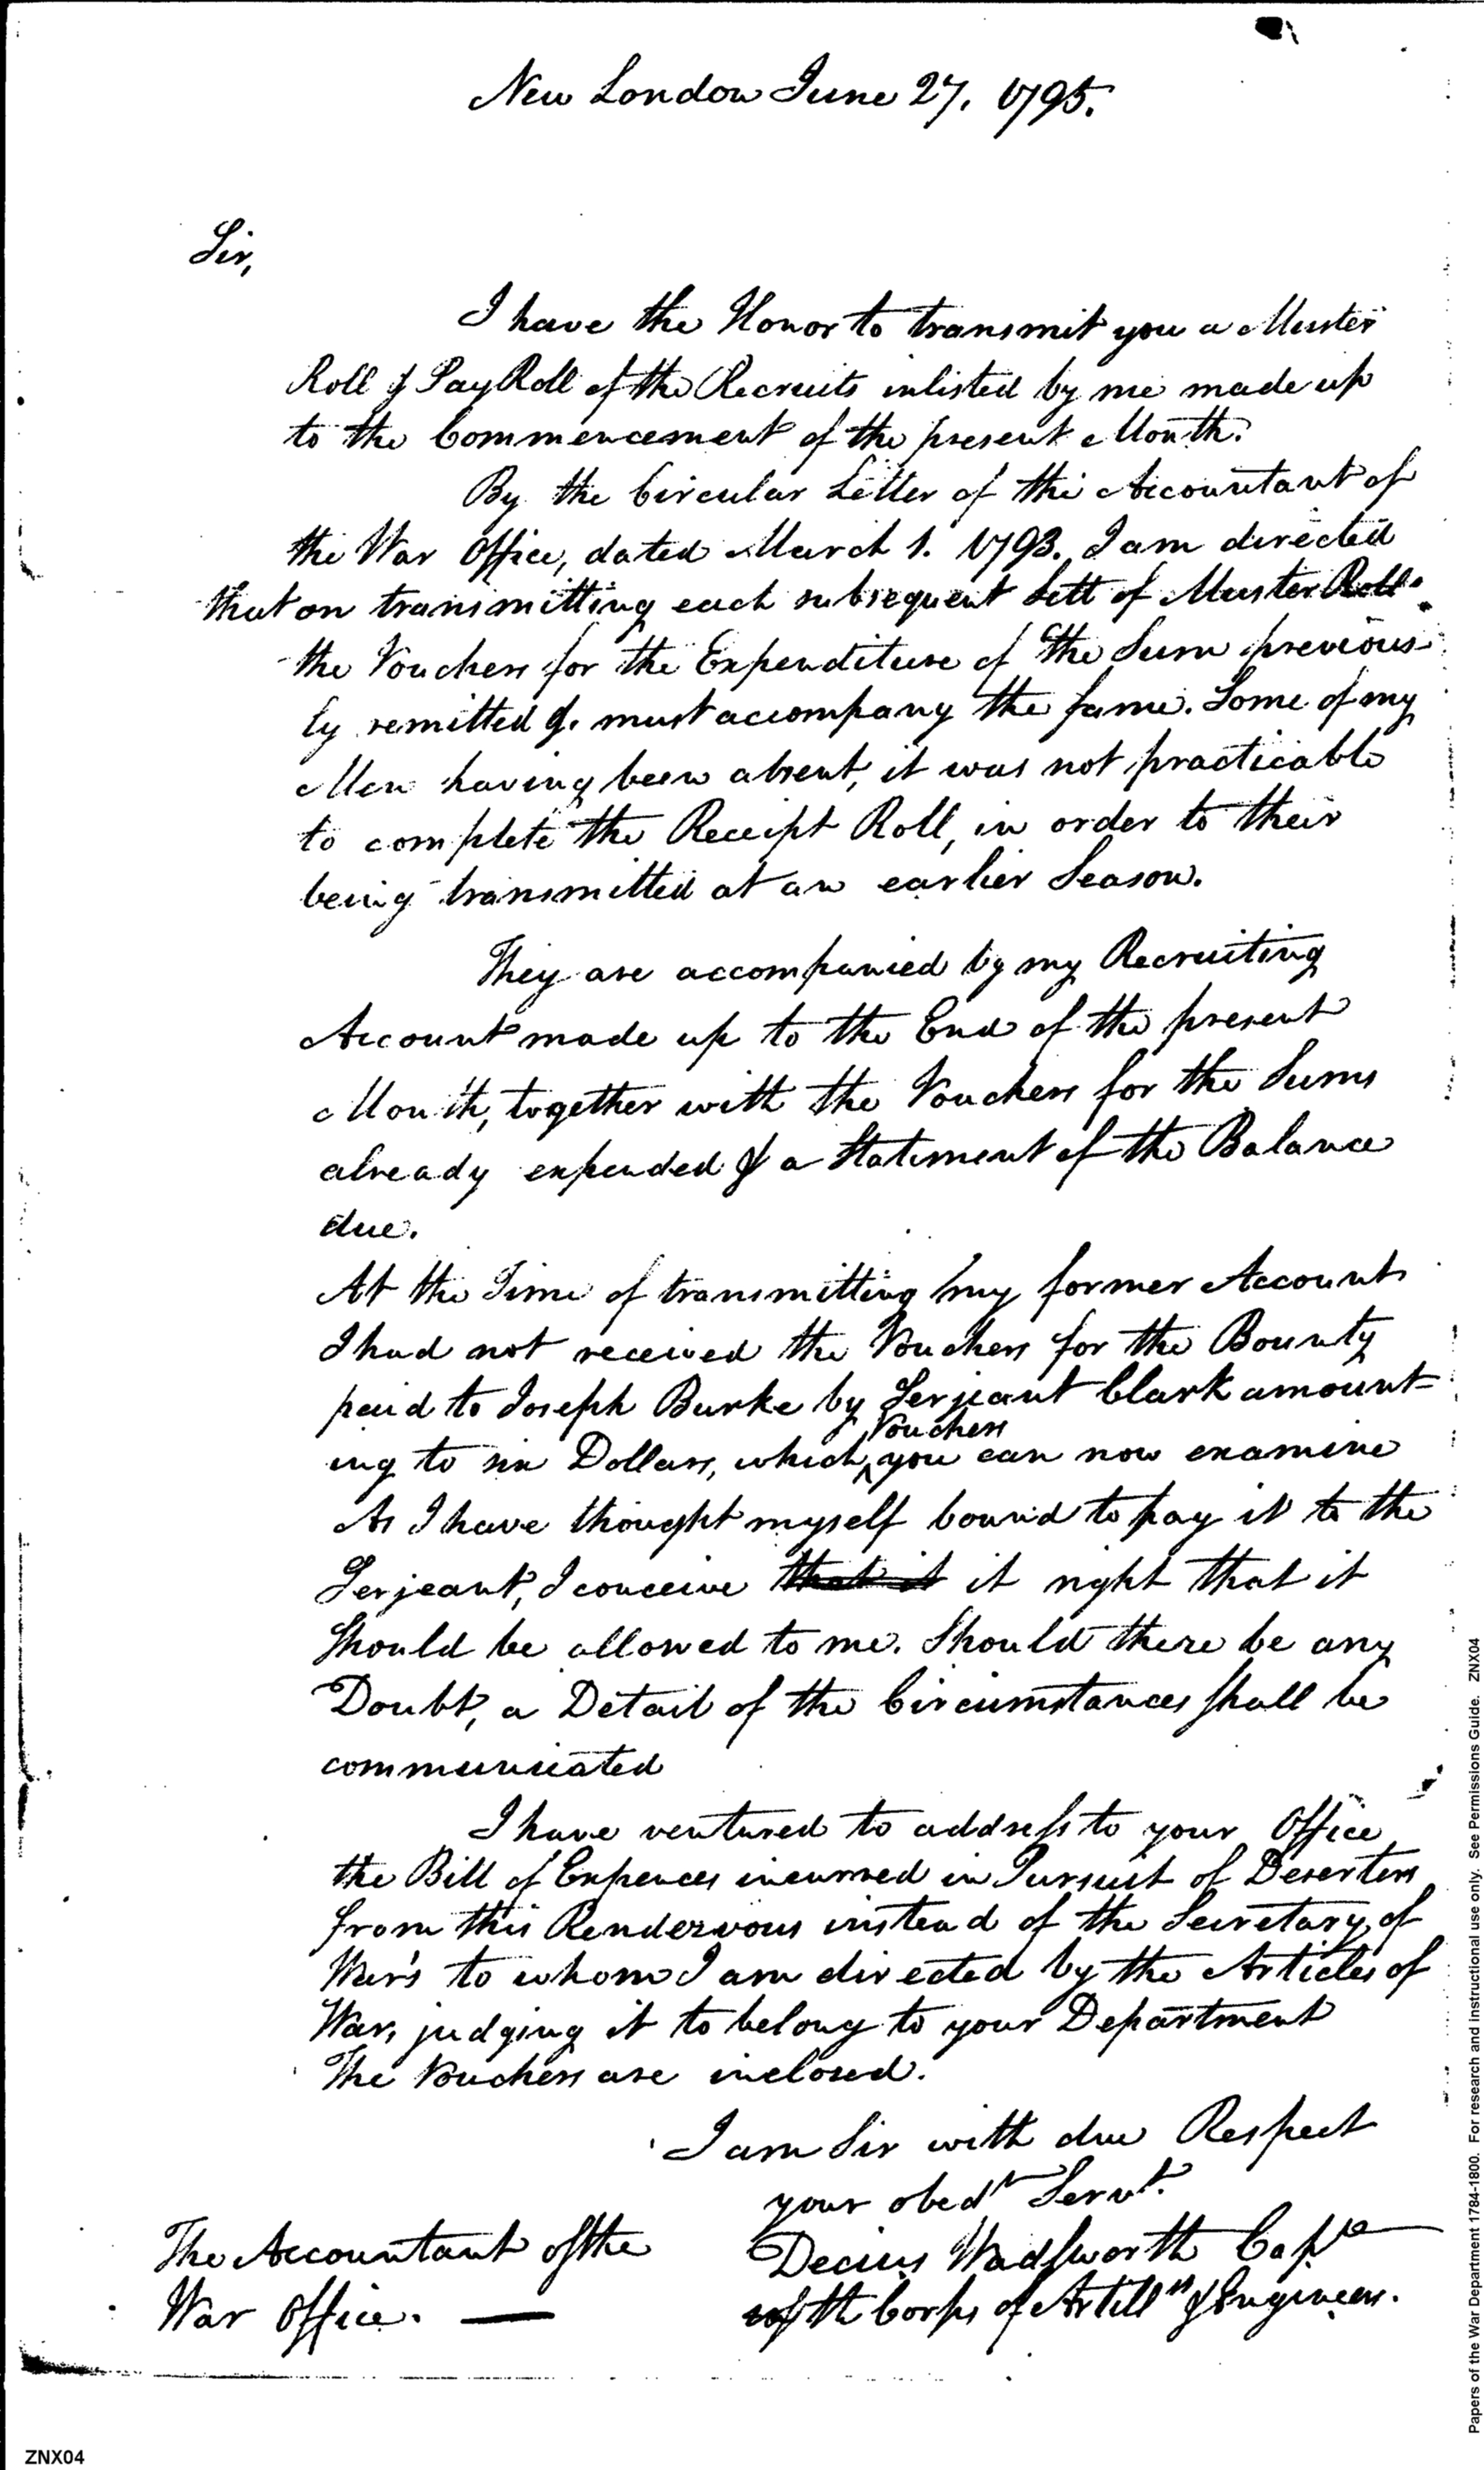 New London June 27. 1795.
Sir,
I have the Honor to transmit you a Muster
Roll & Pay Roll of the Recruits inlisted by me made up
to the Commencement of the present Month.
By the Circular Letter of the Accountant of
the War Office, dated March 1. 1793. I am directed
that on transmitting each subsequent Sett of Muster Rolls
the Vouchers for the Expenditure of the Sum previous-
ly remitted &. must accompany the same. Some of my
Men having been absent, it was not practicable
to complete the Receipt Roll, in order to their
being transmitted at an earlier Season.
They are accompanied by my Recruiting
Account made up to the End of the present
Month, together with the Vouchers for the Sums
already expended & a Statement of the Balance
due.
At the Time of transmitting my former Accounts
I had not received the Vouchers for the Bounty
paid to Joseph Burke by Serjeant Clark amount-
Vouchers
ing to six Dollars, which you can now examine
As I have thought myself bound to pay it to the
Serjeant, I conceive that it it right that it
should be allowed to me. Should there be any
Doubt, a Detail of the Circumstances shall be
communicated
I have ventured to address to your Office
the Bill of Expences incurred in Pursuit of Deserters
from this Rendezvous instead of the Secretary of
War's to whom I am directed by the Articles of
War, judging it to belong to your Department
The Vouchers are inclosed.
I am Sir with due Respect
your obedt Servt.
The Accountant of the
War Office.
Decius Wadsworth Capt
of th Corps of Artilly & Engineers.
ZNX04
Papers of the War Department 1784-1800. For research and instructional use only. See Permissions Guide. ZNX04